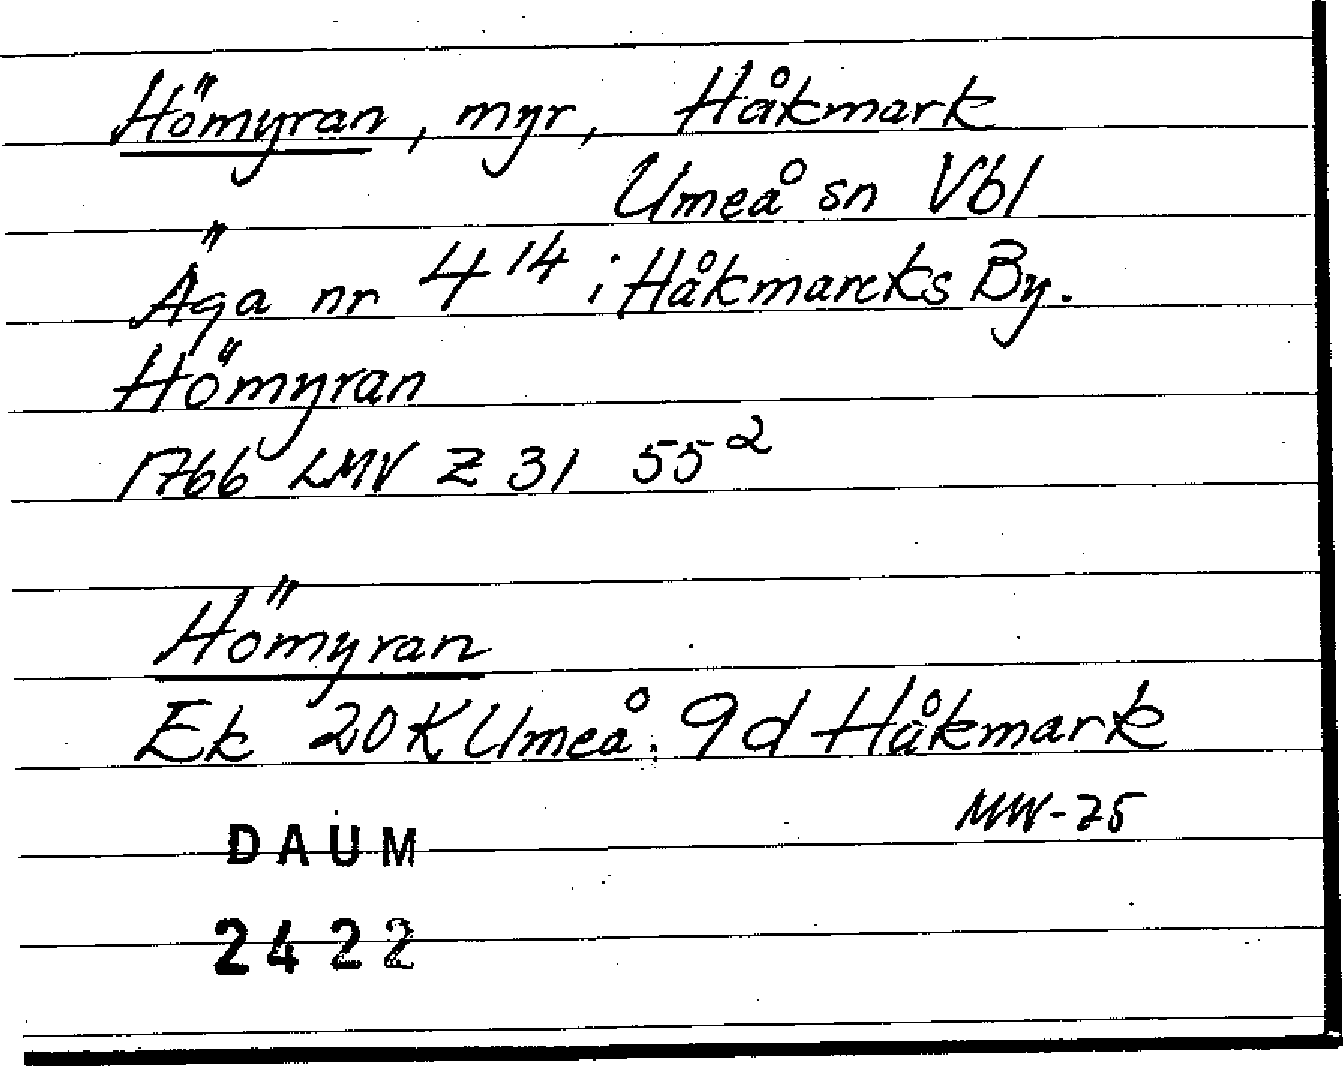 Hömyran, myr, Håkmark
Umeå sn Vbl
Äga nr 4 14 i Håkmarcks By.
Hömyran
1766 LMV Z 31 55 2
Hömyran
Ek 20K Umeå: 9d Håkmark
MW-75
DAUM
2422